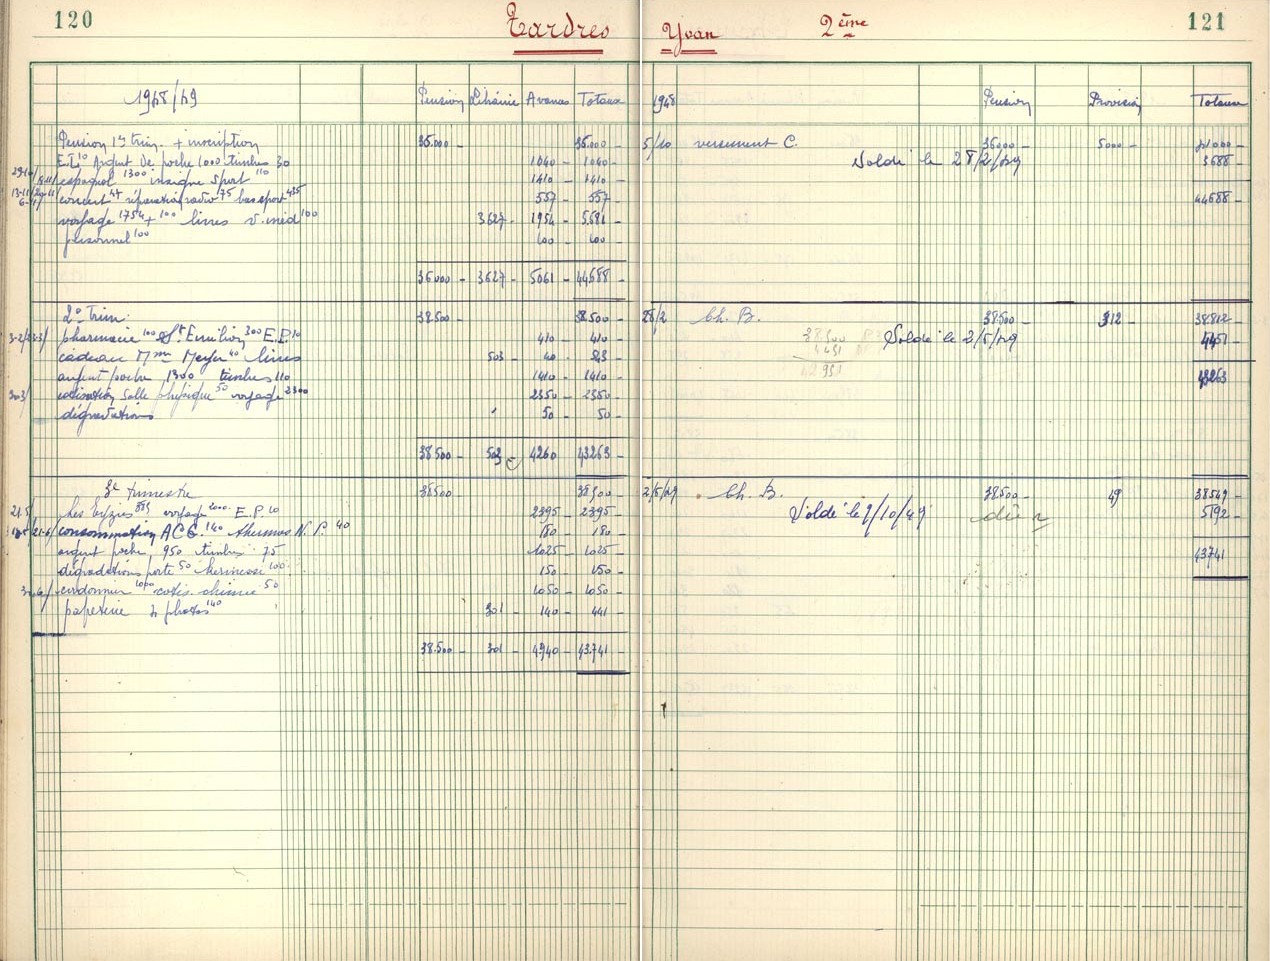 120
Tardres
1948/49 Pension Librairie Avances Totaux
Pension 1er trim. + inscription 36.000 - 36.000 -
E.P. 10 Argent de poche 1000 timbres 30 1040 - 1040 -
espagnol 1300 insigne sport 110 1410 - 1410 -
concert 47 réparation radio 75 bas sport 435 557 - 557 -
voyage 1754 + 100 livres v. méd 100 3627 - 1954 - 5581 -
personnel 100 100 - 100 -
36000 - 3627 - 5061 - 44688 -
2e trim. 38.500 - 38.500 -
pharmacie 100 St Emilion 300 E.P. 10 410 - 410 -
cadeau Mme Meyer 40 livres 503 - 40 - 543 -
argent poche 1300 timbres 110 1410 - 1410 -
cotisation salle physique 50 voyage 2300 2350 - 2350 -
dégradations 50 - 50 -
38500 - 503 4260 43263 -
3e trimestre 38500 38500 -
Les Eyzies 385 voyage 2000 E.P. 10 2395 - 2395 -
consommation 140 thermos N.P. 40 180 - 180 -
argent poche 950 timbres 75 1025 - 1025 -
dégradations porte 50 kermesse 100 150 - 150 -
cordonnier 1000 cotis. chimie 50 1050 - 1050 -
papeterie photos 140 301 - 140 - 441 -
38.500 - 301 - 4940 - 43.741 -
Yvan 2ème
121
1948 Pension Provision Totaux
5/10 versement C. 36000 - 5000 - 41000 -
Soldé le 28/2/49 3688 -
44688 -
28/2 Ch. B. 38500 - 312 - 38812 -
38500
4451
42951
Soldé le 2/5/49 4451 -
43263
2/5/49 Ch. B. 38.500 - 49 38549 -
Soldé le 1/10/49 5192 -
43741